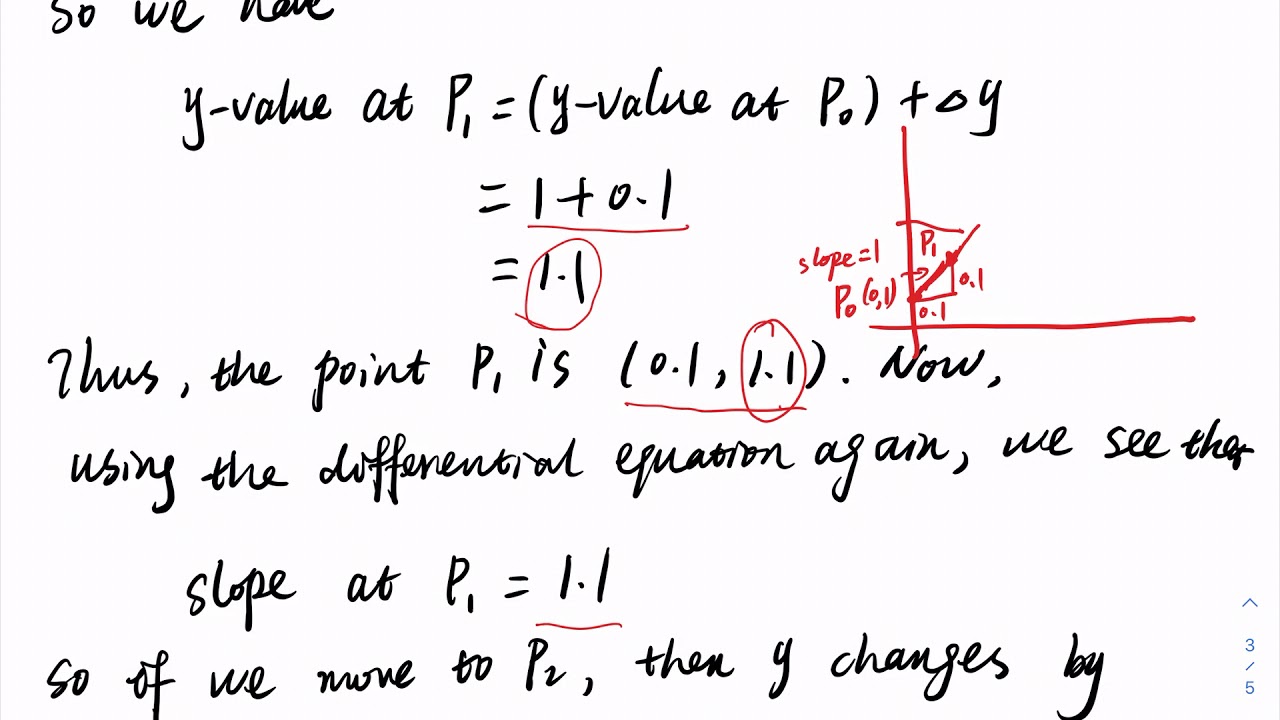 so we have
y-value at P₁ = (y-value at P₀) + △y
= 1 + 0.1
= 1.1
slope=1
P₁
P₀ (0,1)
0.1
0.1
Thus, the point P₁ is (0.1, 1.1). Now,
using the differential equation again, we see that
slope at P₁ = 1.1
so of we move to P₂, then y changes by
3
/
5